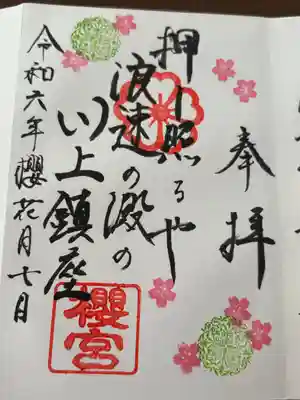 奉拝
押し照るや
浪速の澱の
川上鎮座
櫻宮
令和六年櫻花月七日